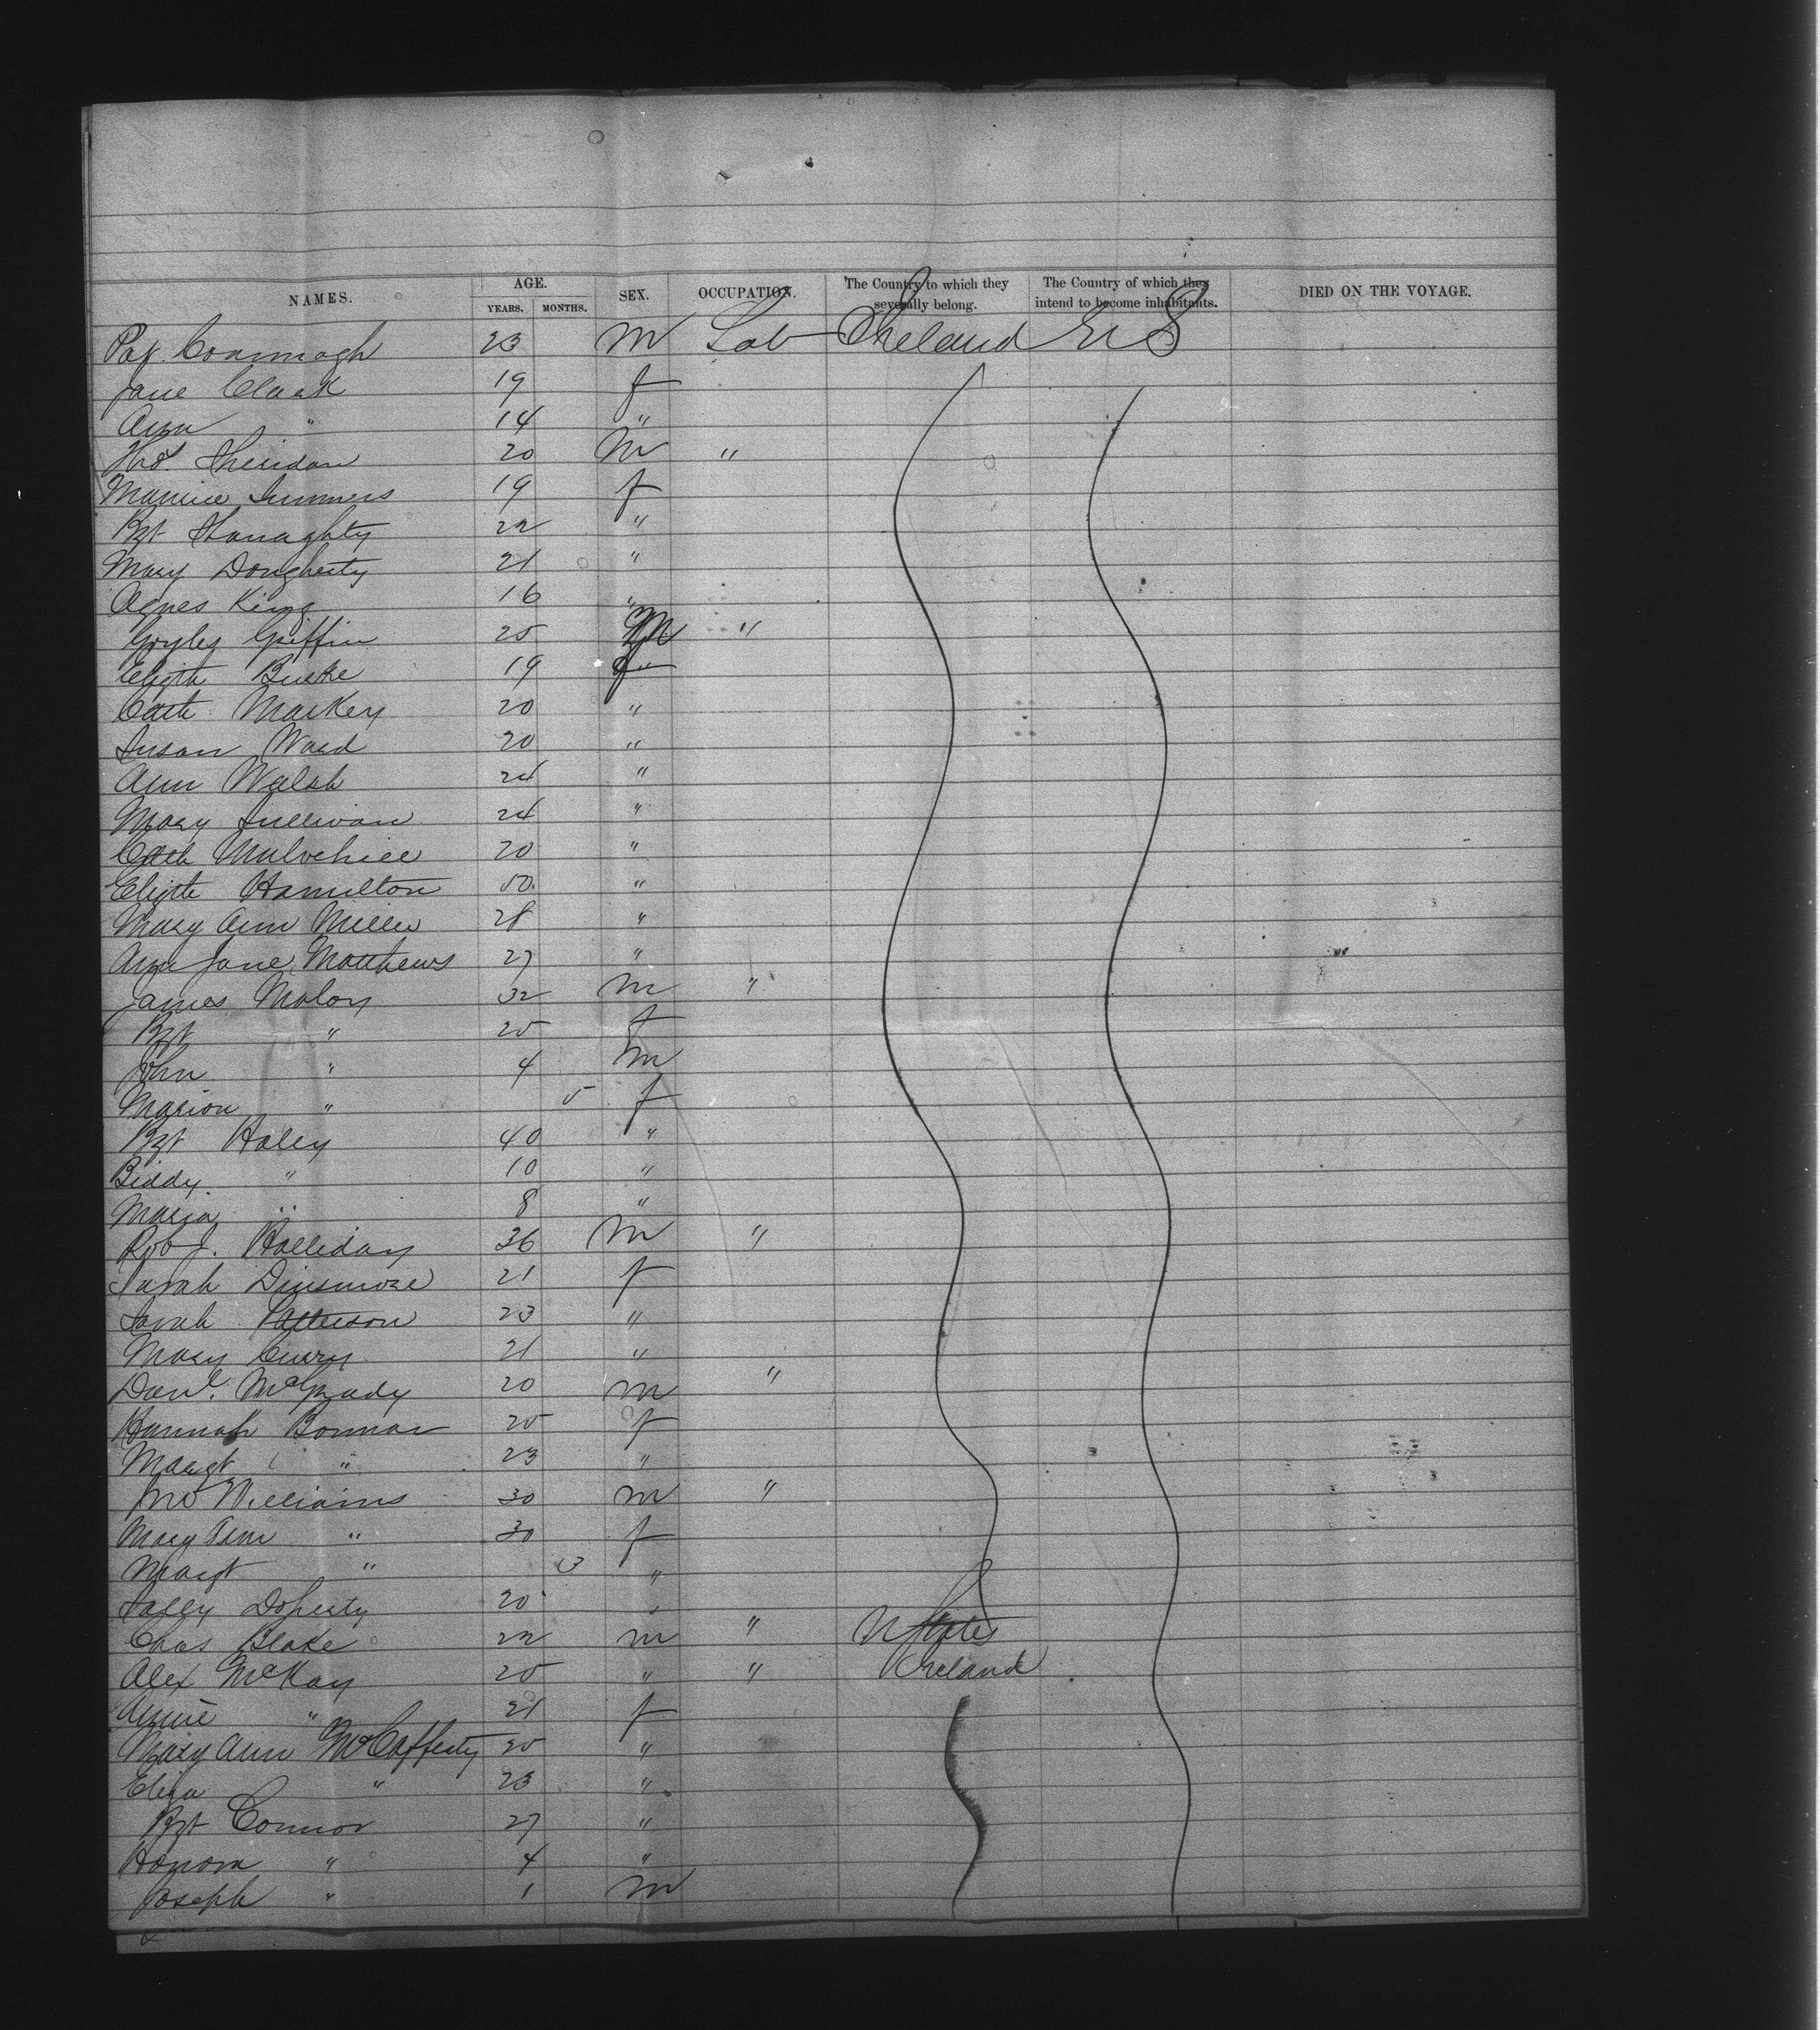 NAMES. AGE. YEARS. MONTHS. SEX. OCCUPATION. The Country to which they severally belong. The Country of which they intend to become inhabitants. DIED ON THE VOYAGE.
23 M Lab Ireland U S
Jane Clark 19 f
Ann " 14 "
Thos. Sheridan 20 M "
Summers 19 f
Bgt 22 "
Mary Dougherty 21 "
Agnes King 16 "
Griffin 25 M "
Elizth Burke 19 f
Cath Markey 20 "
Susan Ward 20 "
Ann Walsh 24 "
Mary Sullivan 24 "
Cath Mulvehill 20 "
Elizth Hamilton 50 "
Mary Ann Miller 28 "
Ann Jane Matthews 27 "
James Maloy 32 M "
Bgt " 25 f
John " 4 M
Marion " 5 f
Bgt Haley 40 "
Biddy " 10 "
Maria " 8 "
Rob J. Halliday 36 M "
Sarah Dinsmore 21 f
Sarah Patterson 23 "
Mary Curry 21 "
Danl. McGrady 20 M "
Hannah Bonnar 25 f
Margt " 23 "
Jno Williams 30 M "
Mary Ann " 30 f
Margt " 3 "
Sally Doherty 20 "
Chas Blake 22 M " U States
Alex McKay 25 " " Ireland
Annie " 21 f
Mary Ann McCafferty 25 "
Eliza " 23 "
Bgt Connor 27 "
Honora " 4 "
Joseph " 1 M